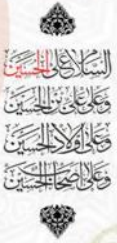 السلام على الحسين
وعلى علي بن الحسين
وعلى أولاد الحسين
وعلى أصحاب الحسين